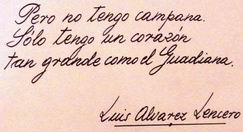 Pero no tengo campana.
Sólo tengo un corazón
tan grande como el Guadiana.
Luis Alvarez Lencero